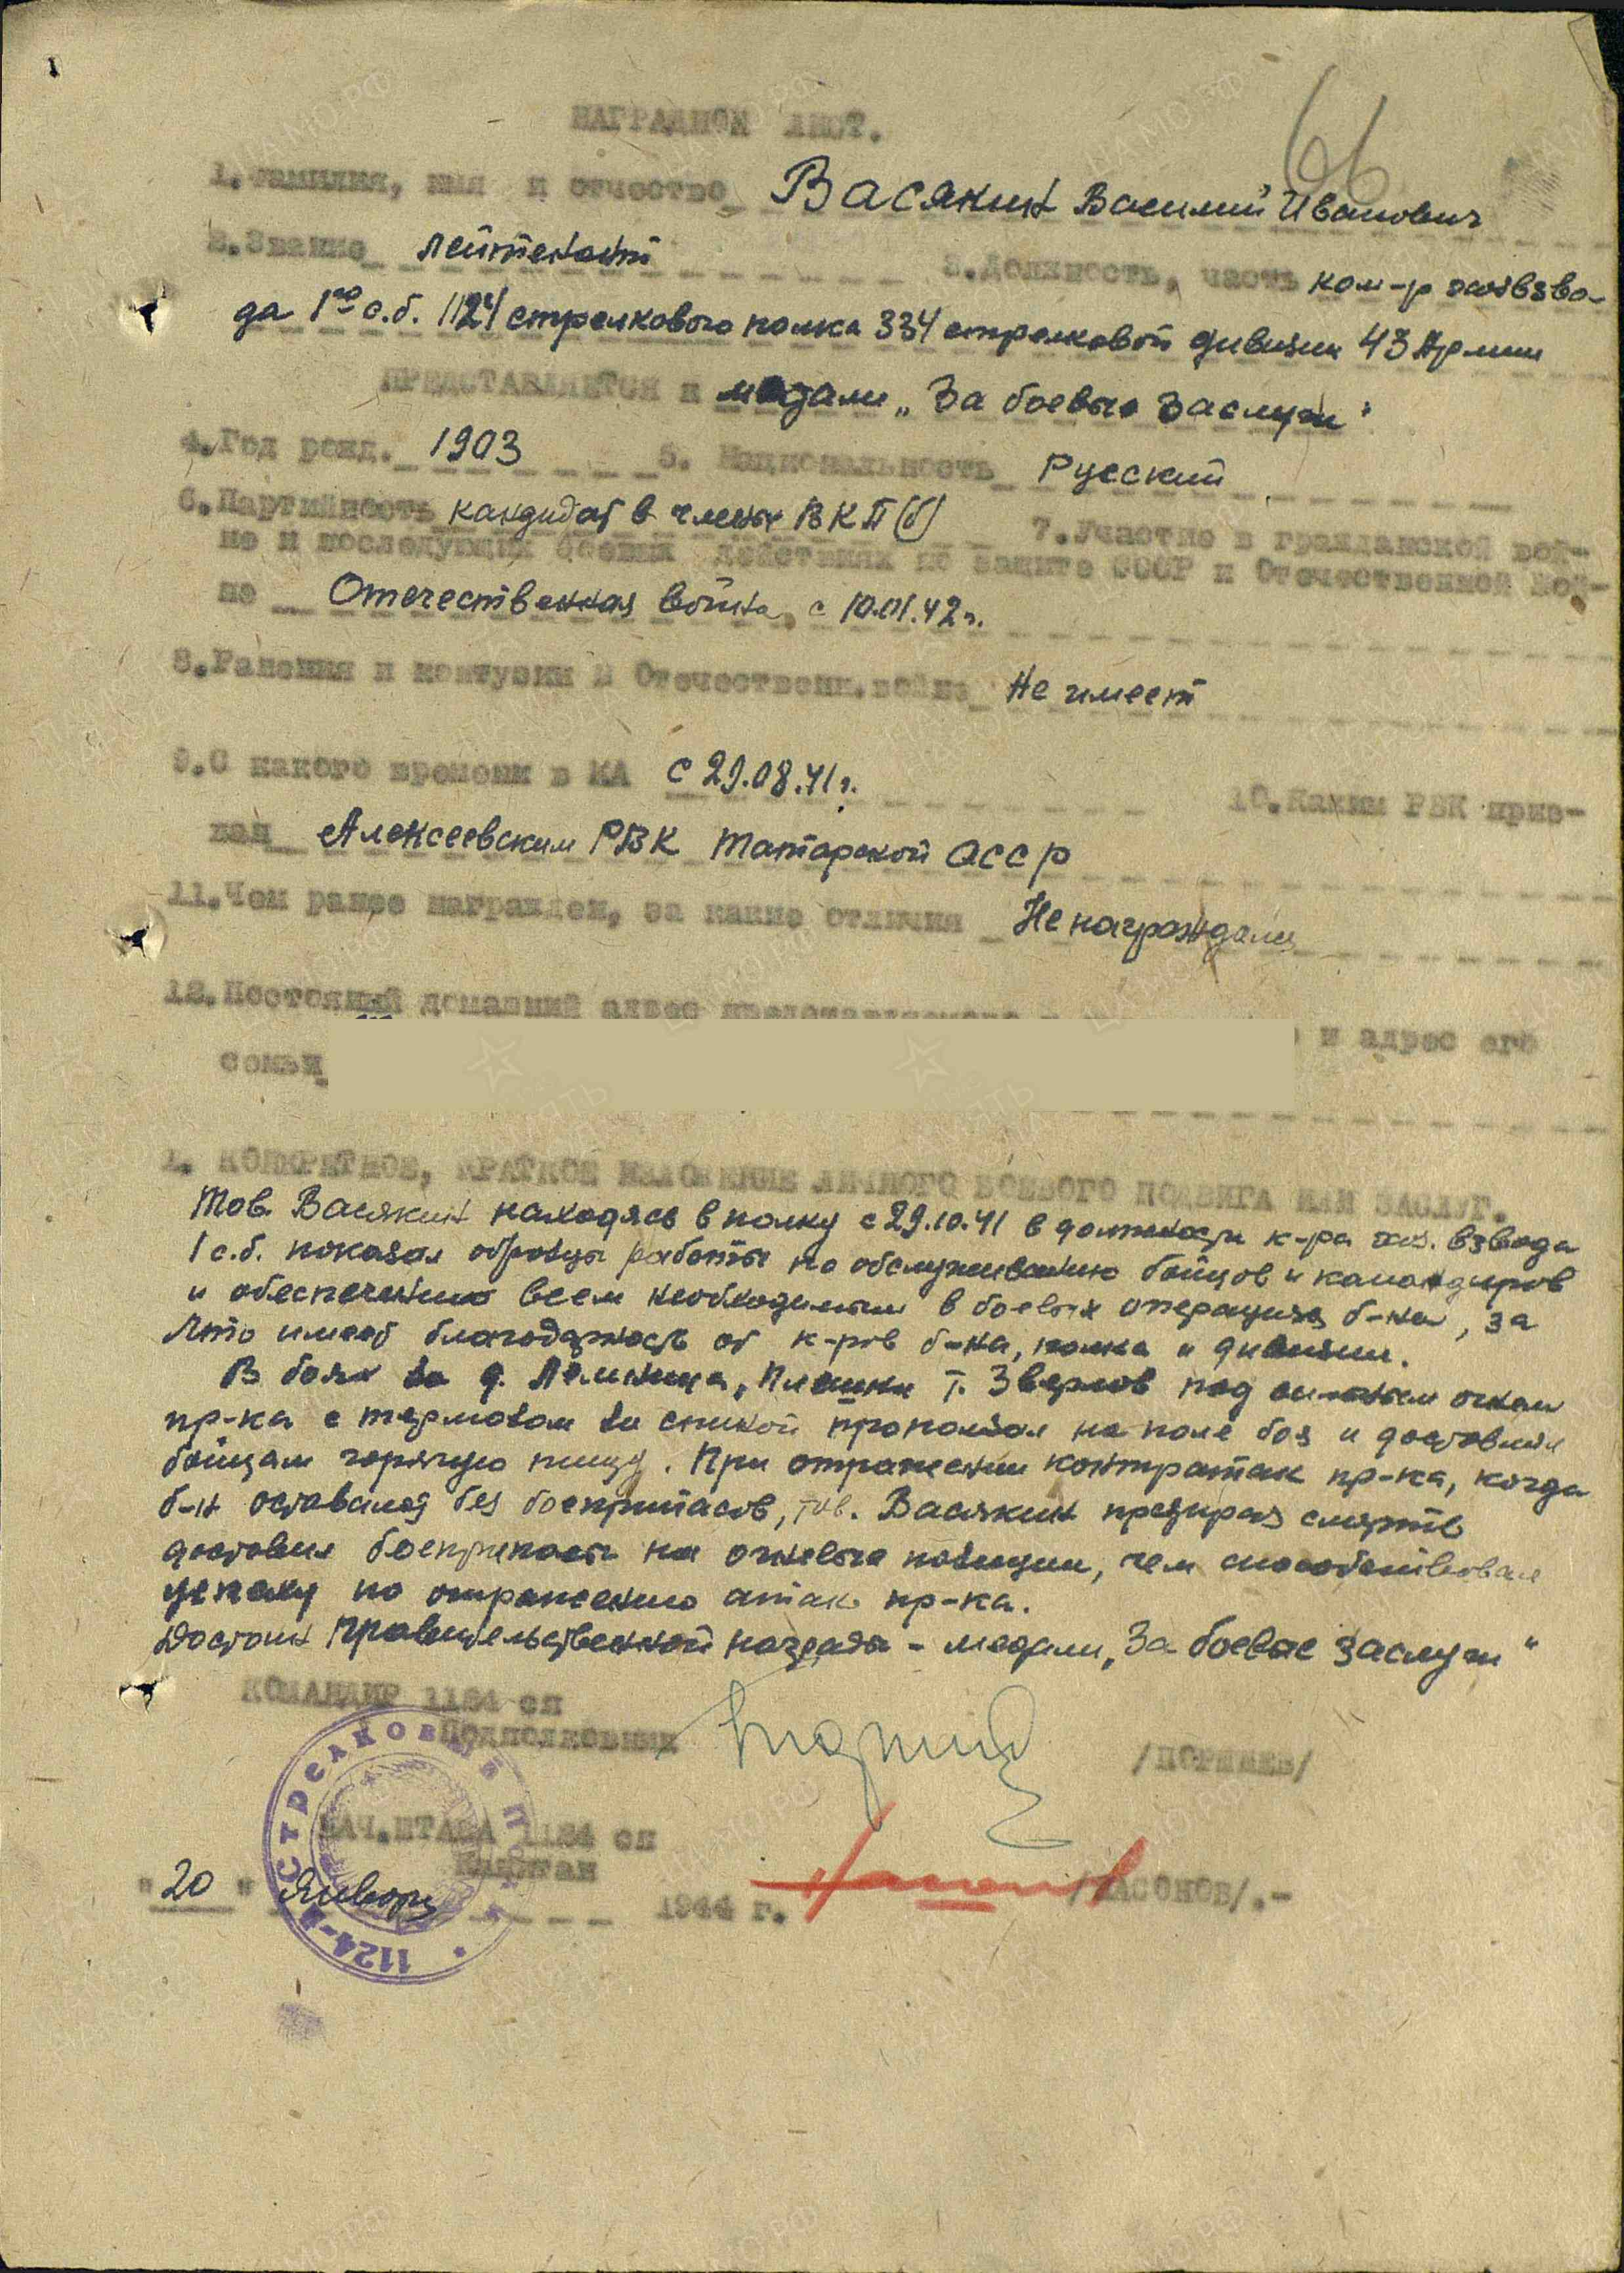 66
НАГРАДНОЙ ЛИСТ.
1.Фамилия, имя и отчество Васякин Василий Иванович
2.Звание лейтенант 3.Должность, часть ком-р хозвзво-
да 1го с.б. 1124 стрелкового полка 334 стрелковой дивизии 43 Армии
ПРЕДСТАВЛЯЕТСЯ к медали „За боевые заслуги"
4.Год рожд. 1903 5. Национальность Русский
6.Партийность кандидат в члены ВКП(б) 7.Участие в гражданской вой-
не и последующих боевых действиях по защите СССР и Отечественной вой-
не Отечественная война, с 10.01.42 г.
8.Ранения и контузии в Отечественн.войне Не имеет
9.С какого времени в КА с 29.08.41 г. 10.Каким РВК приз-
ван Алексеевским РВК Татарской АССР
11.Чем ранее награжден, за какие отличия Не награждался
12.Постоянный домашний адрес представляемого и адрес его
семьи
1. КОНКРЕТНОЕ, КРАТКОЕ ИЗЛОЖЕНИЕ ЛИЧНОГО БОЕВОГО ПОДВИГА ИЛИ ЗАСЛУГ.
Тов. Васякин находясь в полку с 29.10.41 в должности к-ра хоз. взвода
1 с.б. показал образцы работы по обслуживанию бойцов и командиров
и обеспечению всем необходимым в боевых операциях б-на, за
что имеет благодарность от к-ров б-на, полка и дивизии.
В боях за д. Плешки т. Зверлов под сильным огнем
пр-ка с термосом за спиной проползал на поле боя и доставлял
бойцам горячую пищу. При отражении контратак пр-ка, когда
б-н оставался без боеприпасов, тов. Васякин презирая смерть
доставил боеприпасы на огневые позиции, чем способствовал
успеху по отражению атак пр-ка.
Достоин правительственной награды - медали „За боевые заслуги"
КОМАНДИР 1124 сп
Подполковник /ПОРШНЕВ/
НАЧ.ШТАБА 1124 сп
Капитан /НАСОНОВ/.-
"20" Января 1944 г.
1124-Й СТРЕЛКОВЫЙ ПОЛК